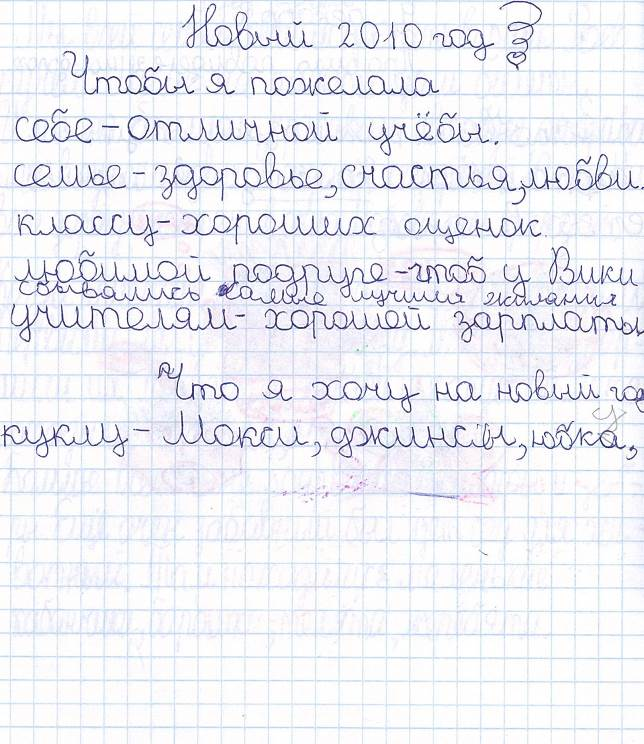 Новый 2010 год
Чтобы я пожелала
себе - отличной учёбы.
семье - здоровье, счастья, любви.
классу - хороших оценок.
любимой подруге - чтоб у Вики
сбывались самые лучшия желания
учителям - хорошей зарплаты
Что я хочу на новый год
куклу - Мокси, джинсы, юбка,
у